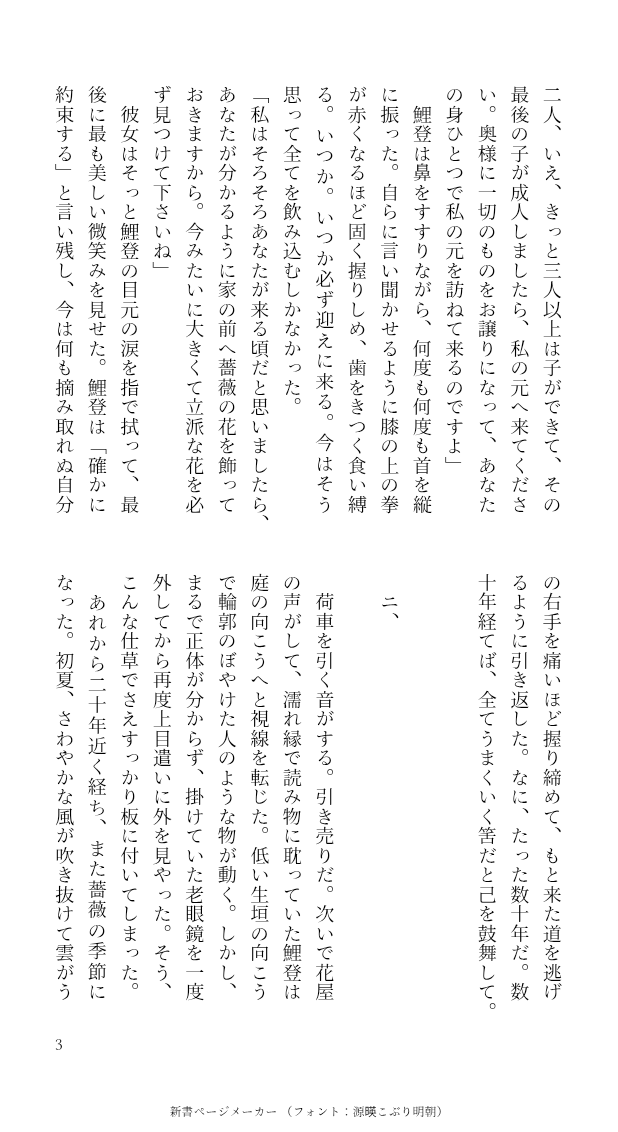 二人、いえ、きっと三人以上は子ができて、その
最後の子が成人しましたら、私の元へ来てくださ
い。奥様に一切のものをお譲りになって、あなた
の身ひとつで私の元を訪ねて来るのですよ」
　鯉登は鼻をすすりながら、何度も何度も首を縦
に振った。自らに言い聞かせるように膝の上の拳
が赤くなるほど固く握りしめ、歯をきつく食い縛
る。いつか。いつか必ず迎えに来る。今はそう
思って全てを飲み込むしかなかった。
「私はそろそろあなたが来る頃だと思いましたら、
あなたが分かるように家の前へ薔薇の花を飾って
おきますから。今みたいに大きくて立派な花を必
ず見つけて下さいね」
　彼女はそっと鯉登の目元の涙を指で拭って、最
後に最も美しい微笑みを見せた。鯉登は「確かに
約束する」と言い残し、今は何も摘み取れぬ自分
の右手を痛いほど握り締めて、もと来た道を逃げ
るように引き返した。なに、たった数十年だ。数
十年経てば、全てうまくいく筈だと己を鼓舞して。
二、
　荷車を引く音がする。引き売りだ。次いで花屋
の声がして、濡れ縁で読み物に耽っていた鯉登は
庭の向こうへと視線を転じた。低い生垣の向こう
で輪郭のぼやけた人のような物が動く。しかし、
まるで正体が分からず、掛けていた老眼鏡を一度
外してから再度上目遣いに外を見やった。そう、
こんな仕草でさえすっかり板に付いてしまった。
　あれから二十年近く経ち、また薔薇の季節に
なった。初夏、さわやかな風が吹き抜けて雲がう
3
新書ページメーカー（フォント：源暎こぶり明朝）